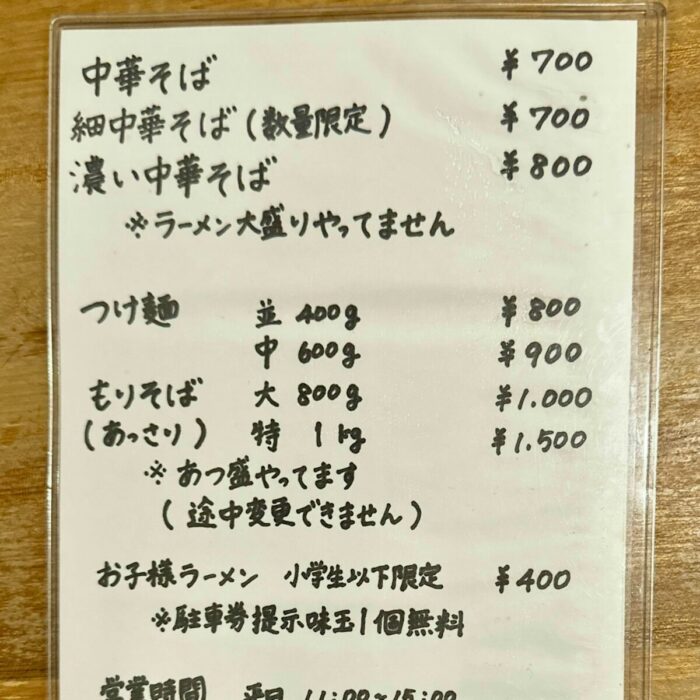 中華そば ¥700
細中華そば(数量限定) ¥700
濃い中華そば ¥800
※ラーメン大盛りやってません
つけ麺 並 400g ¥800
中 600g ¥900
もりそば 大 800g ¥1.000
(あっさり) 特 1kg ¥1.500
※あつ盛やってます
(途中変更できません)
お子様ラーメン 小学生以下限定 ¥400
※駐車券提示味玉1個無料
営業時間 平日 11:00~15:00